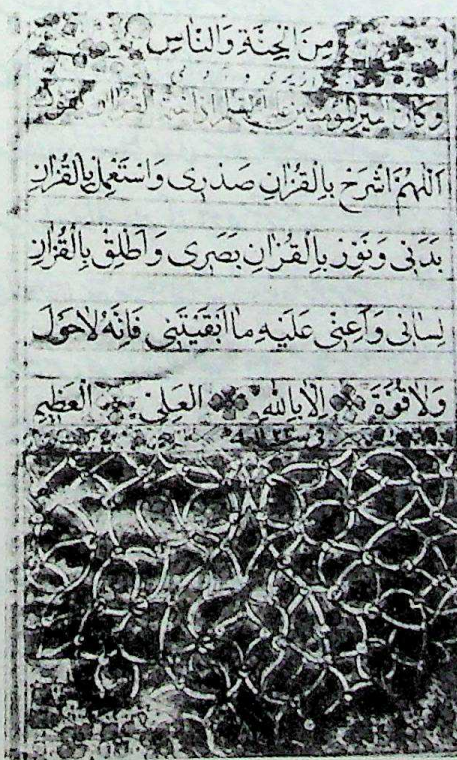 مِنَ الْجِنَّةِ وَالنَّاسِ
وكان اميرالمؤمنين اذا القرآن
اَللّٰهُمَّ اشْرَحْ بِالْقُرْاٰنِ صَدْرِى وَاسْتَعْمِلْ بِالْقُرْاٰنِ
بَدَنِى وَنَوِّرْ بِالْقُرْاٰنِ بَصَرِى وَاَطْلِقْ بِالْقُرْاٰنِ
لِسَانِى وَاَعِنِّى عَلَيْهِ مَا اَبْقَيْتَنِى فَاِنَّهُ لَاحَوْلَ
وَلَا قُوَّةَ اِلَّا بِاللّٰهِ الْعَلِىِّ الْعَظِيمِ